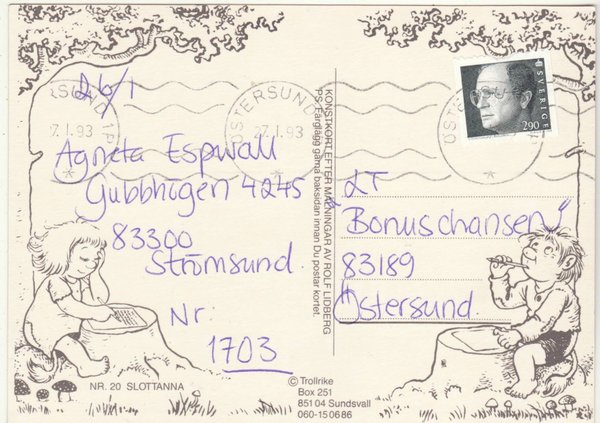 26/1
Agneta Espwall
Gubbhögen 4245
83300
Strömsund.
Nr:
1703
NR. 20 SLOTTANNA
KONSTKORT EFTER MÅLNINGAR AV ROLF LIDBERG
PS. Färglägg gärna baksidan innan Du postar kortet.
© Trollrike
Box 251
851 04 Sundsvall
060-15 06 86
SVERIGE
290
ÖSTERSUND
27.1.93
LT
"Bonuschansen"
83189
Östersund.